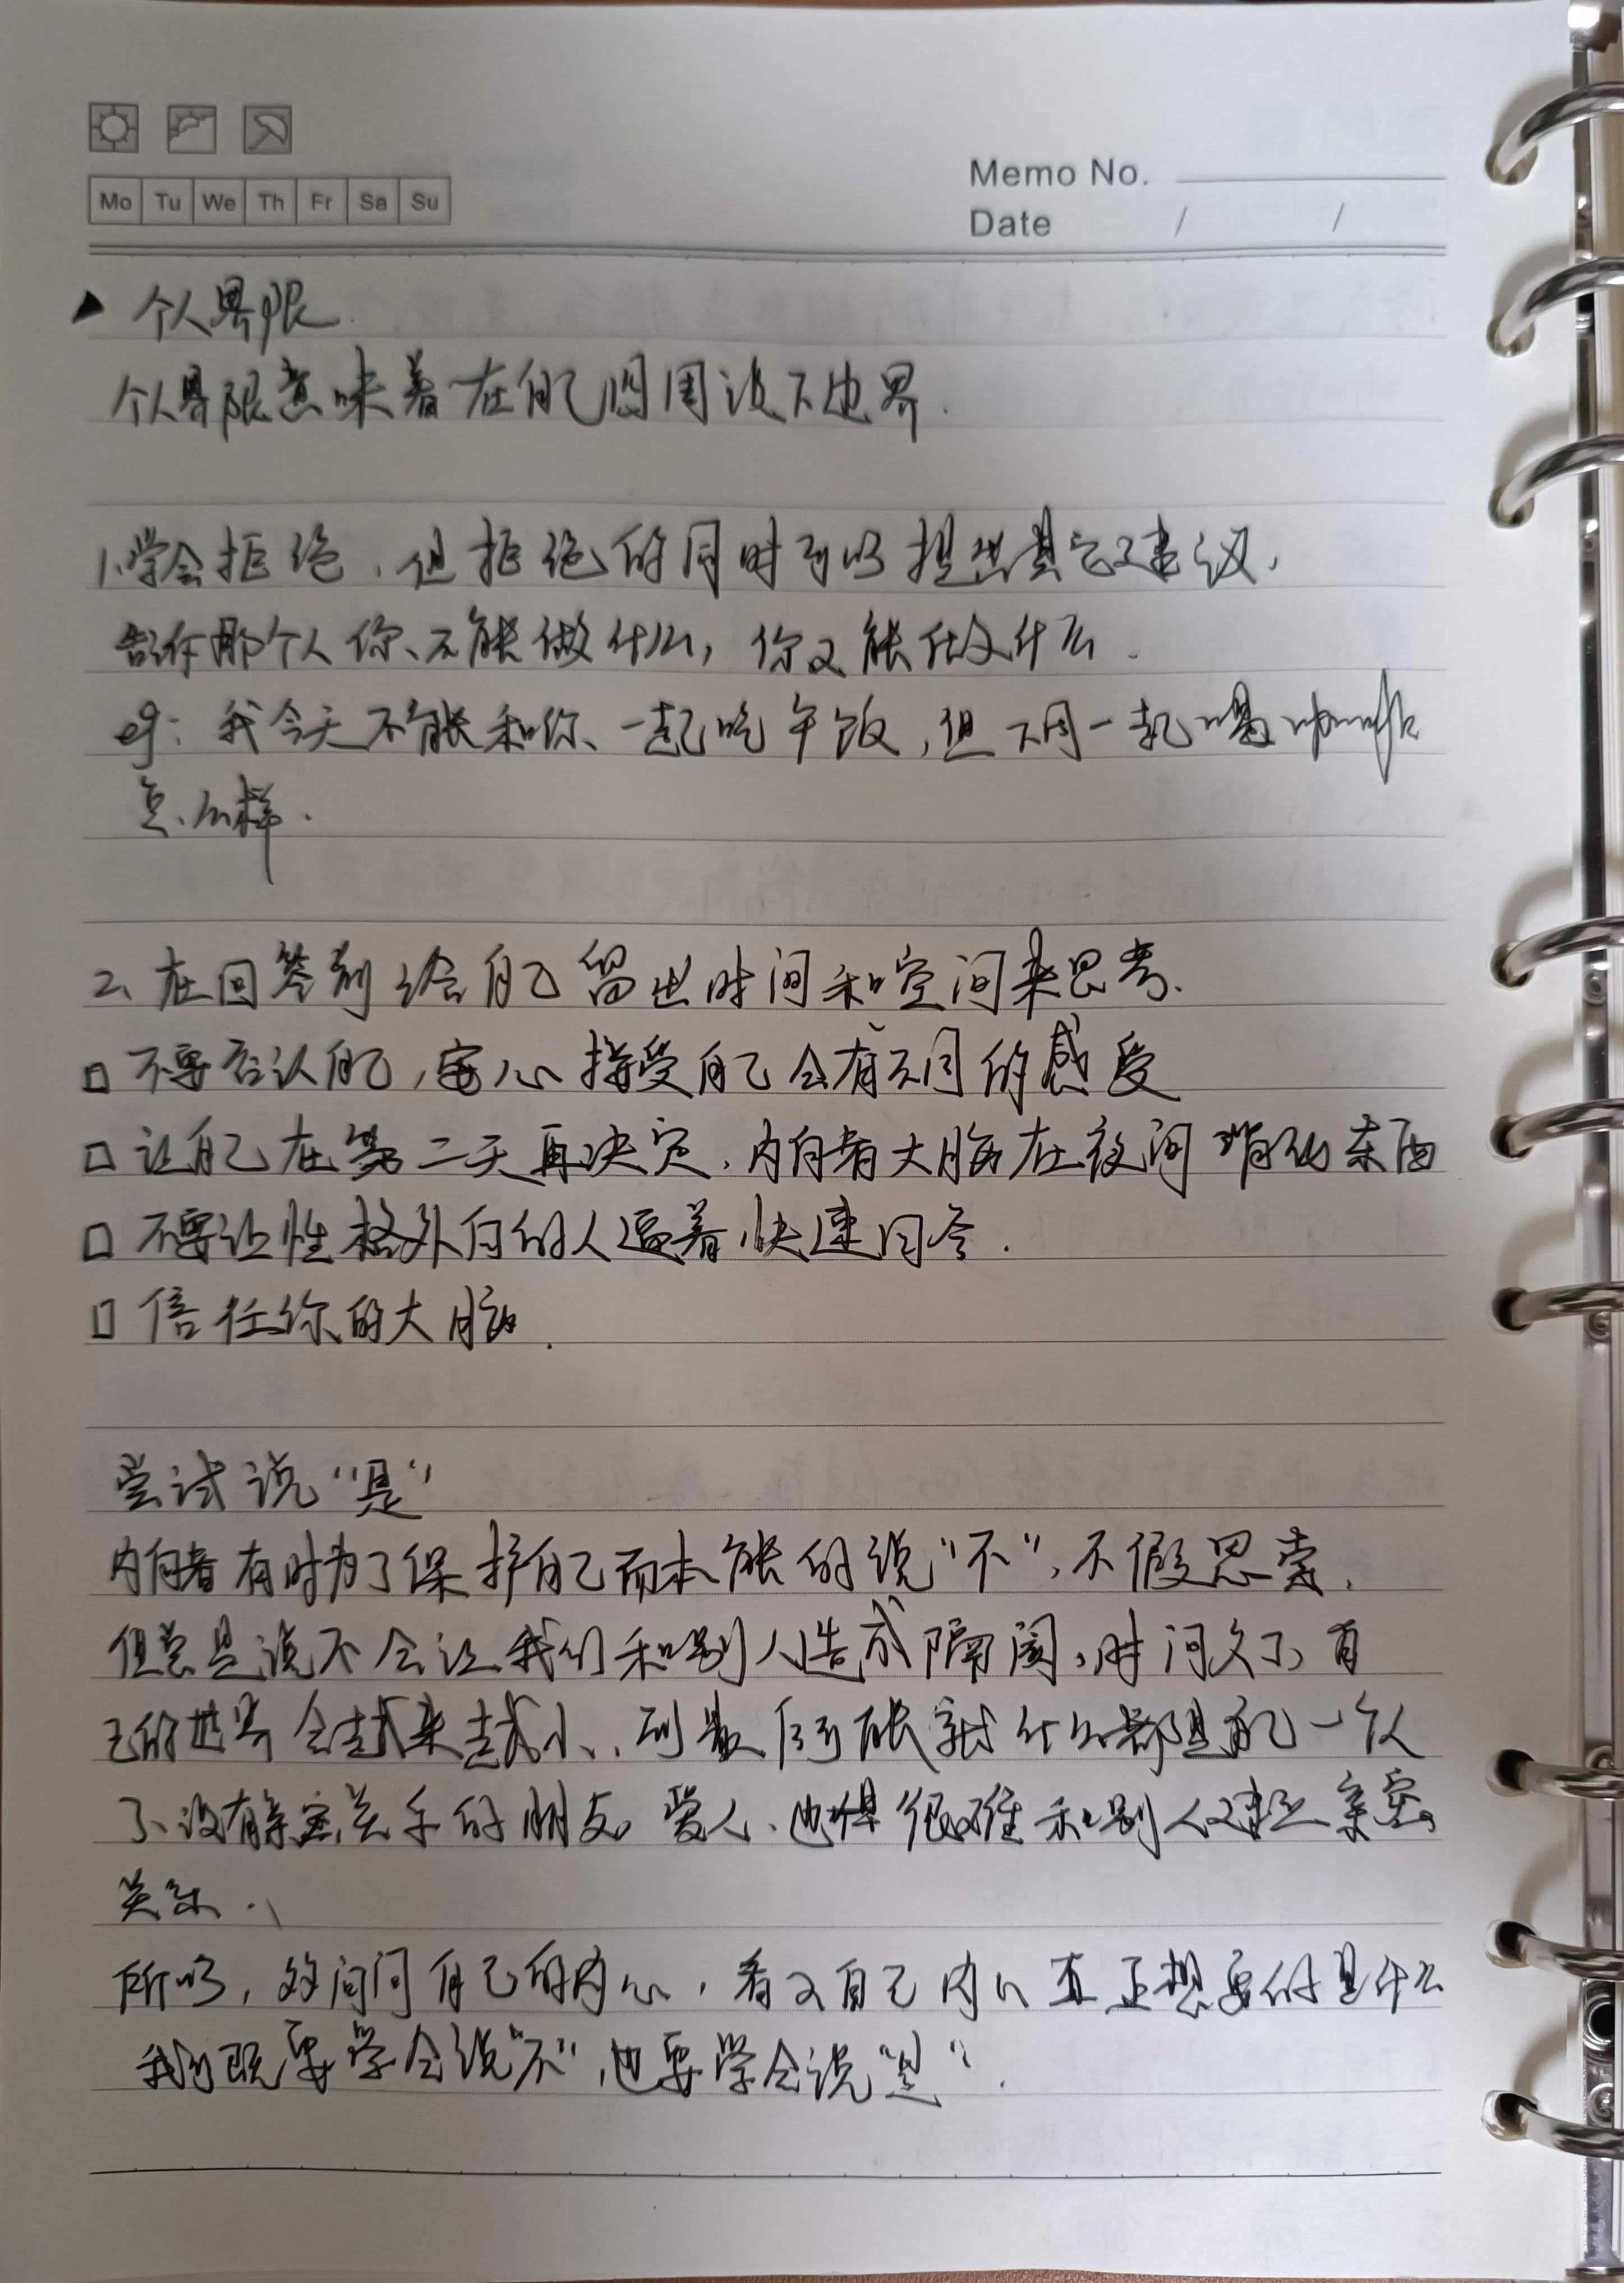 Mo Tu We Th Fr Sa Su
Memo No.
Date / /
个人界限
个人界限意味着在自己周围设下边界.
1.学会拒绝,但拒绝的同时可以提出其它建议,
告诉那个人你不能做什么,你又能做什么.
eg:我今天不能和你一起吃午饭,但下周一起喝咖啡
怎么样.
2、在回答前给自己留出时间和空间来思考.
□不要否认自己,安心接受自己会有不同的感受
□让自己在第二天再决定,内向者大脑在夜间消化东西
□不要让性格外向的人逼着快速回答.
□信任你的大脑.
尝试说“是”
内向者有时为了保护自己而本能的说“不”,不假思索,
但总是说不会让我们和别人造成隔阂,时间久了,自
己的世界会越来越小,到最后可能就什么都是自己一个人
了、没有亲密关系的朋友,爱人、也很难和别人建立亲密
关系.
所以,多问问自己的内心,看又自己内心真正想要的是什么
我们既要学会说“不”,也要学会说“是”.